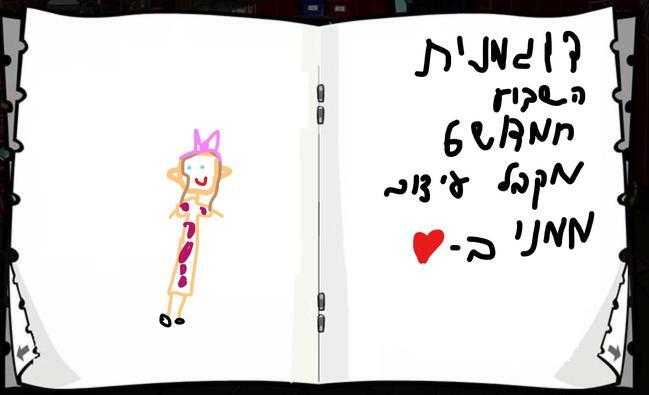 דוגמנית
השבוע
חמדוש6
מקבל עיצוב
ממני ב-❤